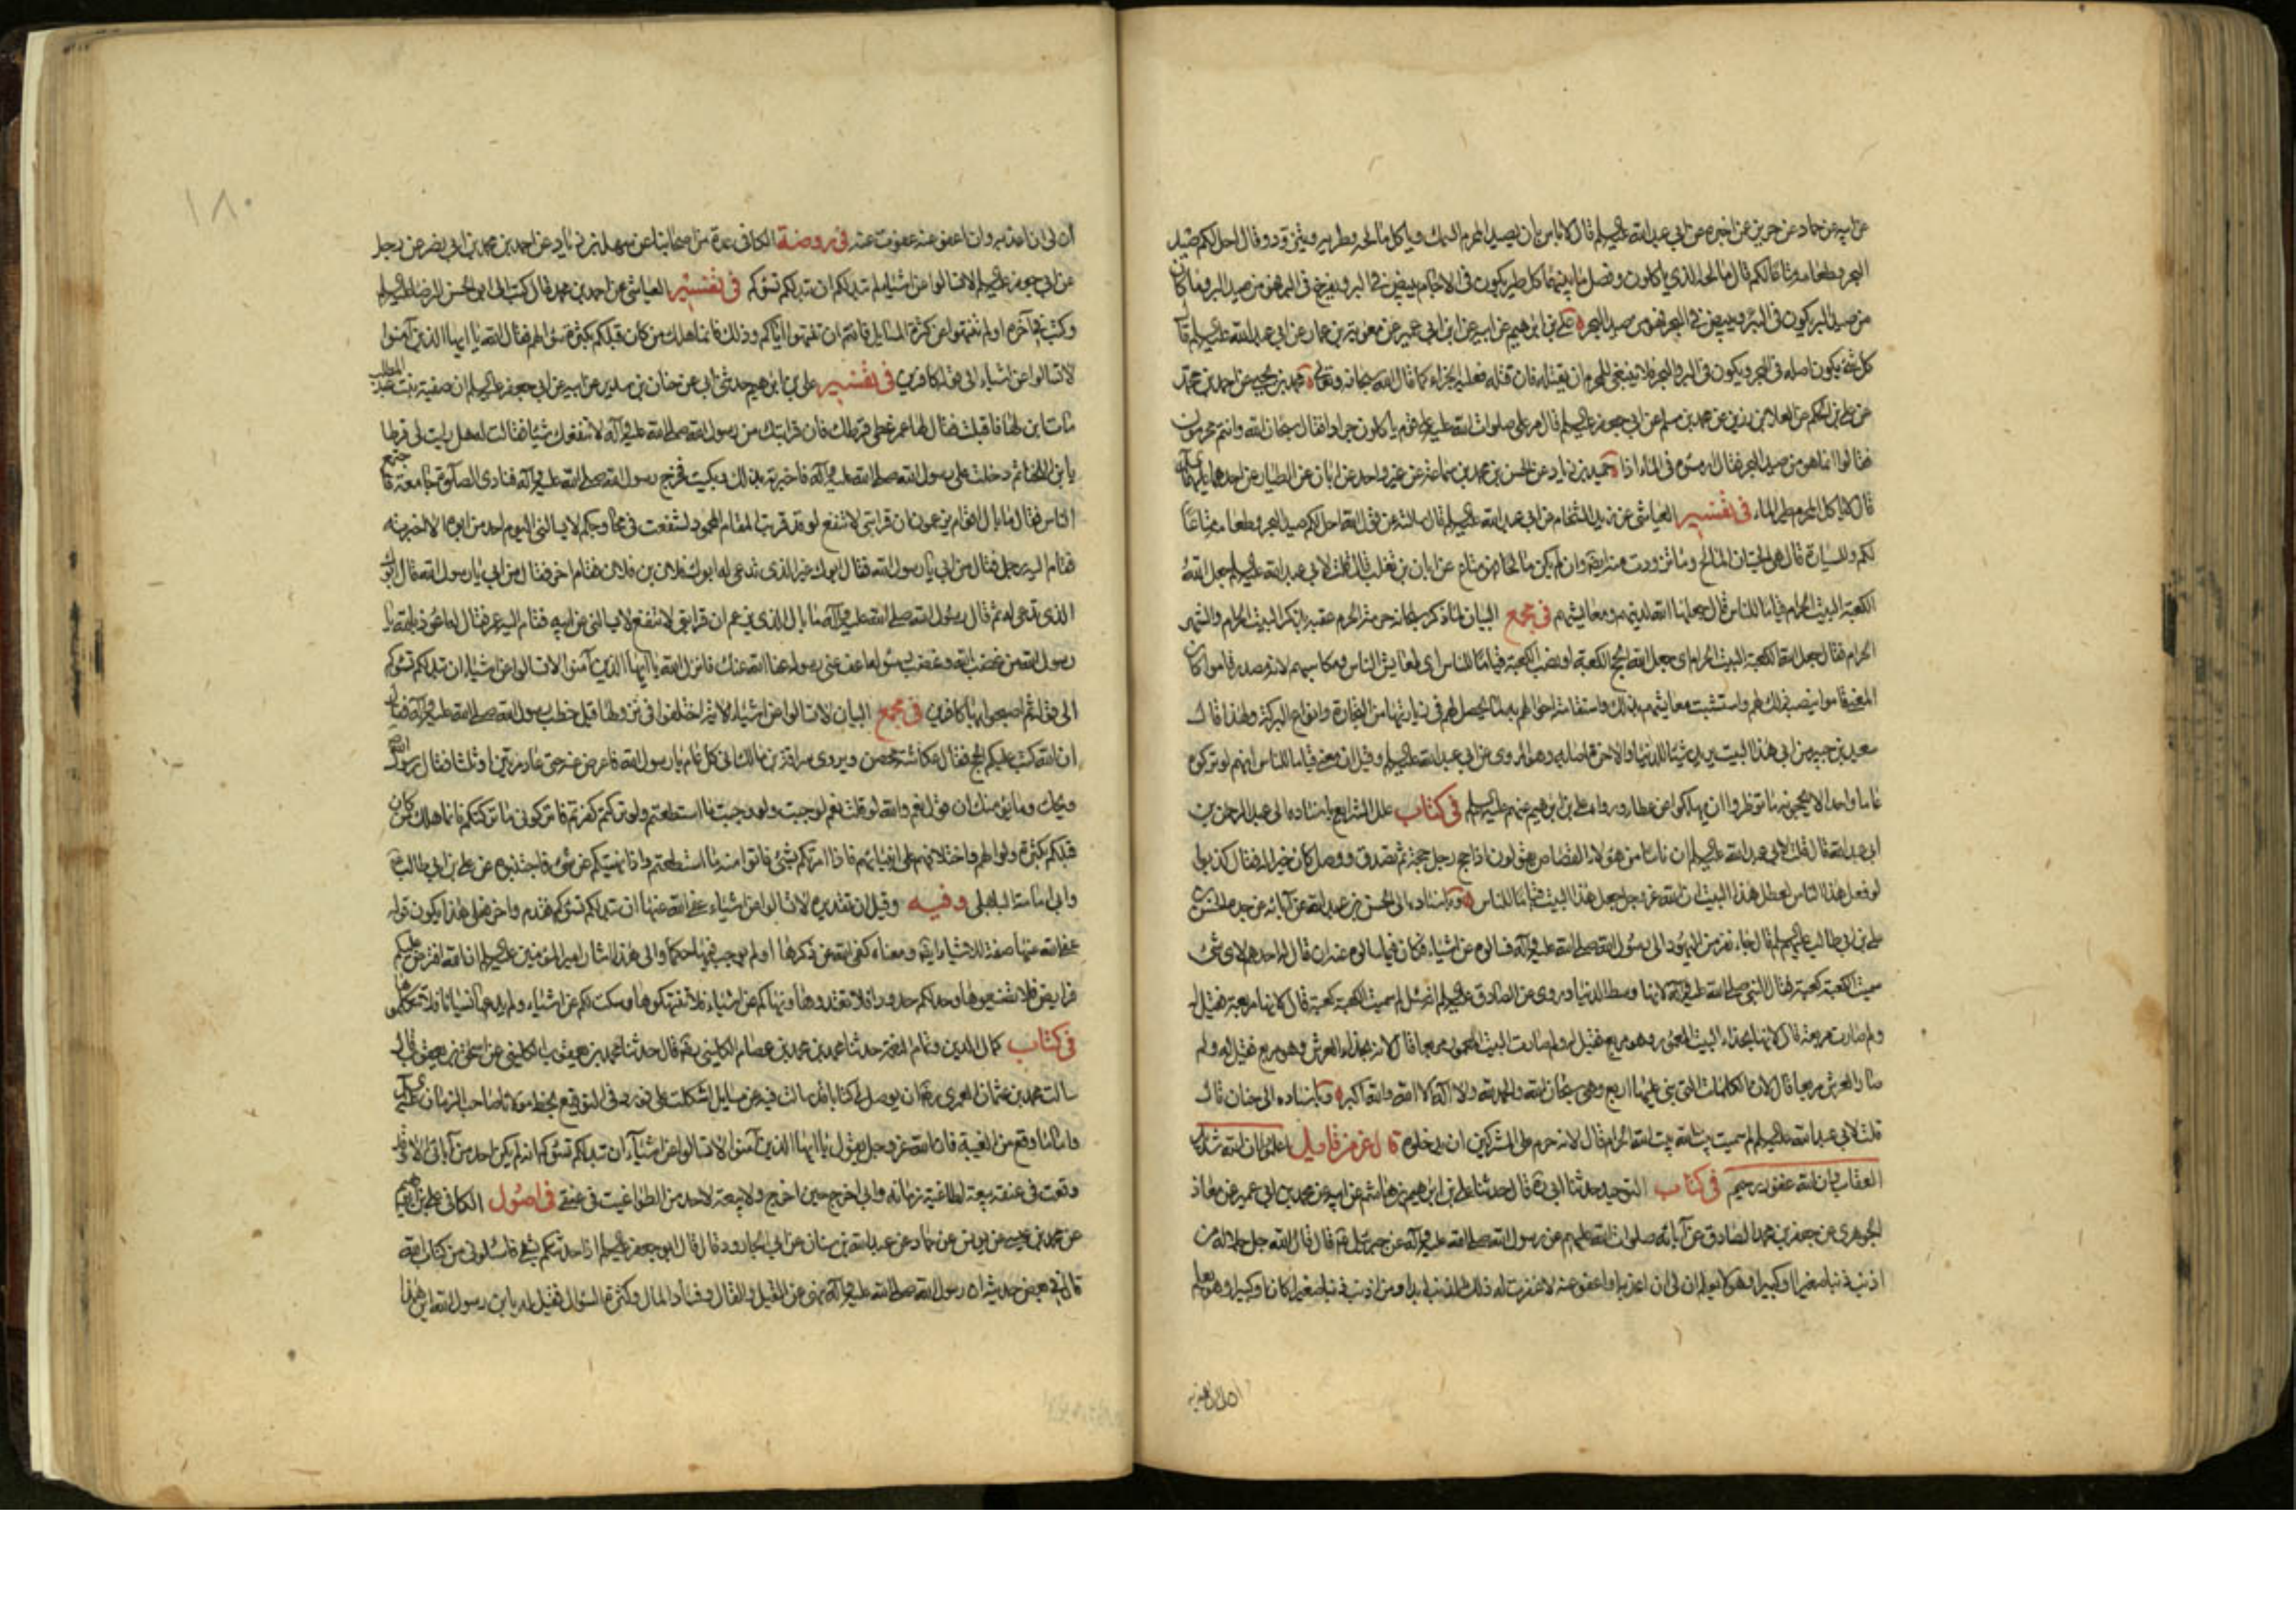 عن ابيه عن حماد عن حريز عن اخبره عن ابي عبد الله عليه السلم قال لا باس بان يصيد المحرم السمك وياكل مالحه وطريه ويتزود وقال احل لكم صيد
البحر وطعامه متاعا لكم قال مالحه الذي ياكلون وفصل ما بينهما كل طير يكون في الاجام يبيض في البر ويفرخ في البر فهو من صيد البر وما كان
من صيد البر يكون في البر ويبيض في البحر فهو من صيد البحر علي بن ابراهيم عن ابيه عن ابن ابي عمير عن معوية بن عمار عن ابي عبد الله عليه السلم قال
كل شئ يكون اصله في البحر ويكون في البر والبحر فلا ينبغي للمحرم ان يقتله فان قتله فعليه الجزاء كما قال الله سبحانه وتعالى محمد بن يحيى عن احمد بن محمد
عن علي بن الحكم عن العلاء بن رزين عن محمد بن مسلم عن ابي جعفر عليه السلم قال مر علي صلوات الله عليه على قوم ياكلون جرادا فقال سبحان الله وانتم محرمون
فقالوا انما هو من صيد البحر فقال ارمسوه في الماء اذا حميد بن زياد عن الحسن بن محمد بن سماعة عن غير واحد عن ابان عن الطيار عن احدهما عليهما السلم
قال لا ياكل المحرم طير الماء في تفسير العياشي عن زيد الشحام عن ابي عبد الله عليه السلم قال سالته عن قول الله احل لكم صيد البحر وطعامه متاعا
لكم وللسيارة قال هي الحيتان المالح وما تزودت منه ايضا وان لم يكن مالحا فهو متاع عن ابان بن تغلب قال قلت لابي عبد الله عليه السلم جعل الله
الكعبة البيت الحرام قياما للناس قال جعلها الله لدينهم ومعايشهم في مجمع البيان لما ذكر سبحانه حرمة الحرم عقبه بذكر البيت الحرام والشهر
الحرام فقال جعل الله الكعبة البيت الحرام اي جعل الله الحج الكعبة او نصب الكعبة قياما للناس اي لمعايش الناس ومكاسبهم لانه مصدر قاموا كان
المعنى قاموا بنصبه ذلك لهم واستتبت معايشهم بذلك واستقامت احوالهم به لما يحصل لهم في زيارتها من التجارة وانواع البركة ولهذا قال
سعيد بن جبير من اتى هذا البيت يريد شيئا للدنيا والاخرة اصابه وهو المروي عن ابي عبد الله عليه السلم وقيل ان معنى قياما للناس انهم لو تركوه
عاما واحدا لا يحجونه ما نوظروا ان يهلكوا عن عطا ورواه علي بن ابراهيم عنهم عليهم السلم في كتاب علل الشرايع باسناده الى عبد الرحمن بن
ابي عبد الله قال قلت لابي عبد الله عليه السلم ان ناسا من هؤلاء القصاص يقولون اذا حج رجل حجة ثم تصدق ووصل كان خيرا له فقال كذبوا
لو فعل هذا الناس لعطل هذا البيت ان الله عز وجل جعل هذا البيت قياما للناس وباسناده الى الحسن بن عبد الله عن آبائه عن جده الحسن بن
علي بن ابي طالب عليهم السلم قال جاء نفر من اليهود الى رسول الله صلى الله عليه وآله فسالوه عن اشياء فكان فيما سالوه عنه ان قال له احدهم لاي شئ
سميت الكعبة كعبة فقال النبي صلى الله عليه وآله لانها وسط الدنيا وروي عن الصادق عليه السلم انه سئل لم سميت الكعبة كعبة قال لانها مربعة فقيل له
ولم صارت مربعة قال لانها بحذاء البيت المعمور وهو مربع فقيل له ولم صارت البيت المعمور مربعا قال لانه بحذاء العرش وهو مربع فقيل له ولم
صار العرش مربعا قال لان الكلمات التي بني عليها اربع وهي سبحان الله والحمد لله ولا اله الا الله والله اكبر وباسناده الى حنان قال
قلت لابي عبد الله عليه السلم لم سميت بيت الله الحرام قال لانه حرم على المشركين ان يدخلوه قال عز من قايل اعلموا ان الله شديد
العقاب وان الله غفور رحيم في كتاب التوحيد حدثنا ابي ره قال حدثنا علي بن ابراهيم بن هاشم عن ابيه عن محمد بن ابي عمير عن معاذ
الجوهري عن جعفر بن محمد الصادق عن آبائه صلوات الله عليهم عن رسول الله صلى الله عليه وآله عن جبرئيل قال قال الله جل جلاله من
اذنب ذنبا صغيرا او كبيرا وهو لا يعلم ان لي ان اعذبه او اعفو عنه لا غفرت له ذلك الذنب ابدا ومن اذنب ذنبا صغيرا كان او كبيرا وهو يعلم
ان لي ان اعذبه
ان لي ان اعذبه وان اعفو عنه عفوت عنه في روضة الكافي عدة من اصحابنا عن سهل بن زياد عن احمد بن محمد بن ابي نصر عن رجل
عن ابي جعفر عليه السلم لا تسالوا عن اشياء لم تبد لكم ان تبد لكم تسؤكم في تفسير العياشي عن احمد بن محمد قال كتب الى ابو الحسن الرضا عليه السلم
وكتب في آخره اولم تنتهوا عن كثرة المسايل فابيتم ان تنتهوا اياكم وذلك فانما هلك من كان قبلكم بكثرة سؤالهم فقال الله يا ايها الذين آمنوا
لا تسالوا عن اشياء الى قوله كافرين في تفسير علي بن ابراهيم حدثني ابي عن حنان بن سدير عن ابيه عن ابي جعفر عليه السلم ان صفية بنت عبد المطلب
مات ابن لها فاقبلت فقال لها عمر غطي قرطك فان قرابتك من رسول الله صلى الله عليه وآله لا تنفعك شيئا فقالت له هل رايت لي قرطا
يا بن اللخناء ثم دخلت على رسول الله صلى الله عليه وآله فاخبرته بذلك وبكيت فخرج رسول الله صلى الله عليه وآله فنادى الصلوة جامعة فاجتمع
الناس فقال ما بال اقوام يزعمون ان قرابتي لا تنفع لو قد قربت المقام المحمود لشفعت في حا وحكم لا يسالني اليوم احد من ابوه الا اخبرته
فقام اليه رجل فقال من ابي يا رسول الله فقال ابوك غير الذي تدعى له ابوك فلان بن فلان فقام اخر فقال من ابي يا رسول الله قال ابوك
الذي تدعى له ثم قال رسول الله صلى الله عليه وآله ما بال الذي يزعم ان قرابتي لا تنفع لا يسالني عن ابيه فقام اليه عمر فقال اعوذ بالله يا
رسول الله من غضب الله وغضب رسوله اعف عني رسوله عفا الله عنك فانزل الله يا ايها الذين آمنوا لا تسالوا عن اشياء ان تبد لكم تسؤكم
الى قوله ثم اصبحوا بها كافرين في مجمع البيان لا تسالوا عن اشياء الاية اختلفوا في نزولها قيل خطب رسول الله صلى الله عليه وآله فقال
ان الله كتب عليكم الحج فقال عكاشة بن محصن ويروى سراقة بن مالك افي كل عام يا رسول الله فاعرض عنه حتى عاد مرتين او ثلثا فقال رسول الله
ويحك وما يؤمنك ان اقول نعم والله لو قلت نعم لوجبت ولو وجبت ما استطعتم ولو تركتم كفرتم فاتركوني ما تركتكم فانما هلك من كان
قبلكم بكثرة سؤالهم واختلافهم على انبيائهم فاذا امرتكم بشئ فاتوا منه ما استطعتم واذا نهيتكم عن شئ فاجتنبوه عن علي بن ابي طالب
وابي امامة الباهلي وفيه وقيل ان تقديره لا تسالوا عن اشياء عفا الله عنها ان تبد لكم تسؤكم فقدم واخر فعلى هذا يكون قوله
عفا الله عنها صفة للاشياء ايضا ومعناه كف الله عن ذكرها اولم يوجب فيها حكما والى هذا اشار امير المؤمنين عليه السلم ان الله افترض عليكم
فرايض فلا تضيعوها وحد لكم حدودا فلا تعتدوها ونهاكم عن اشياء فلا تنتهكوها وسكت لكم عن اشياء ولم يدعها نسيانا فلا تتكلفوها
في كتاب كمال الدين وتمام النعمة حدثنا محمد بن محمد بن عصام الكليني ره قال حدثنا محمد بن يعقوب الكليني عن اسحق بن يعقوب قال
سالت محمد بن عثمان العمري ره ان يوصل لي كتابا قد سالت فيه عن مسايل اشكلت علي فورد في التوقيع بخط مولانا صاحب الزمان عليه السلم
واما ما وقع من الغيبة فان الله عز وجل يقول يا ايها الذين آمنوا لا تسالوا عن اشياء ان تبد لكم تسؤكم انه لم يكن احد من آبائي الا وقد
وقعت في عنقه بيعة لطاغية زمانه واني اخرج حين اخرج ولا بيعة لاحد من الطواغيت في عنقي في اصول الكافي علي بن ابراهيم
عن محمد بن عيسى عن يونس عن حماد عن عبد الله بن سنان عن ابي الجارود قال قال ابو جعفر عليه السلم اذا حدثتكم بشئ فاسئلوني من كتاب الله
قال في بعض حديثه ان رسول الله صلى الله عليه وآله نهى عن القيل والقال وفساد المال وكثرة السؤال فقيل له يا بن رسول الله اين هذا
١٨٠